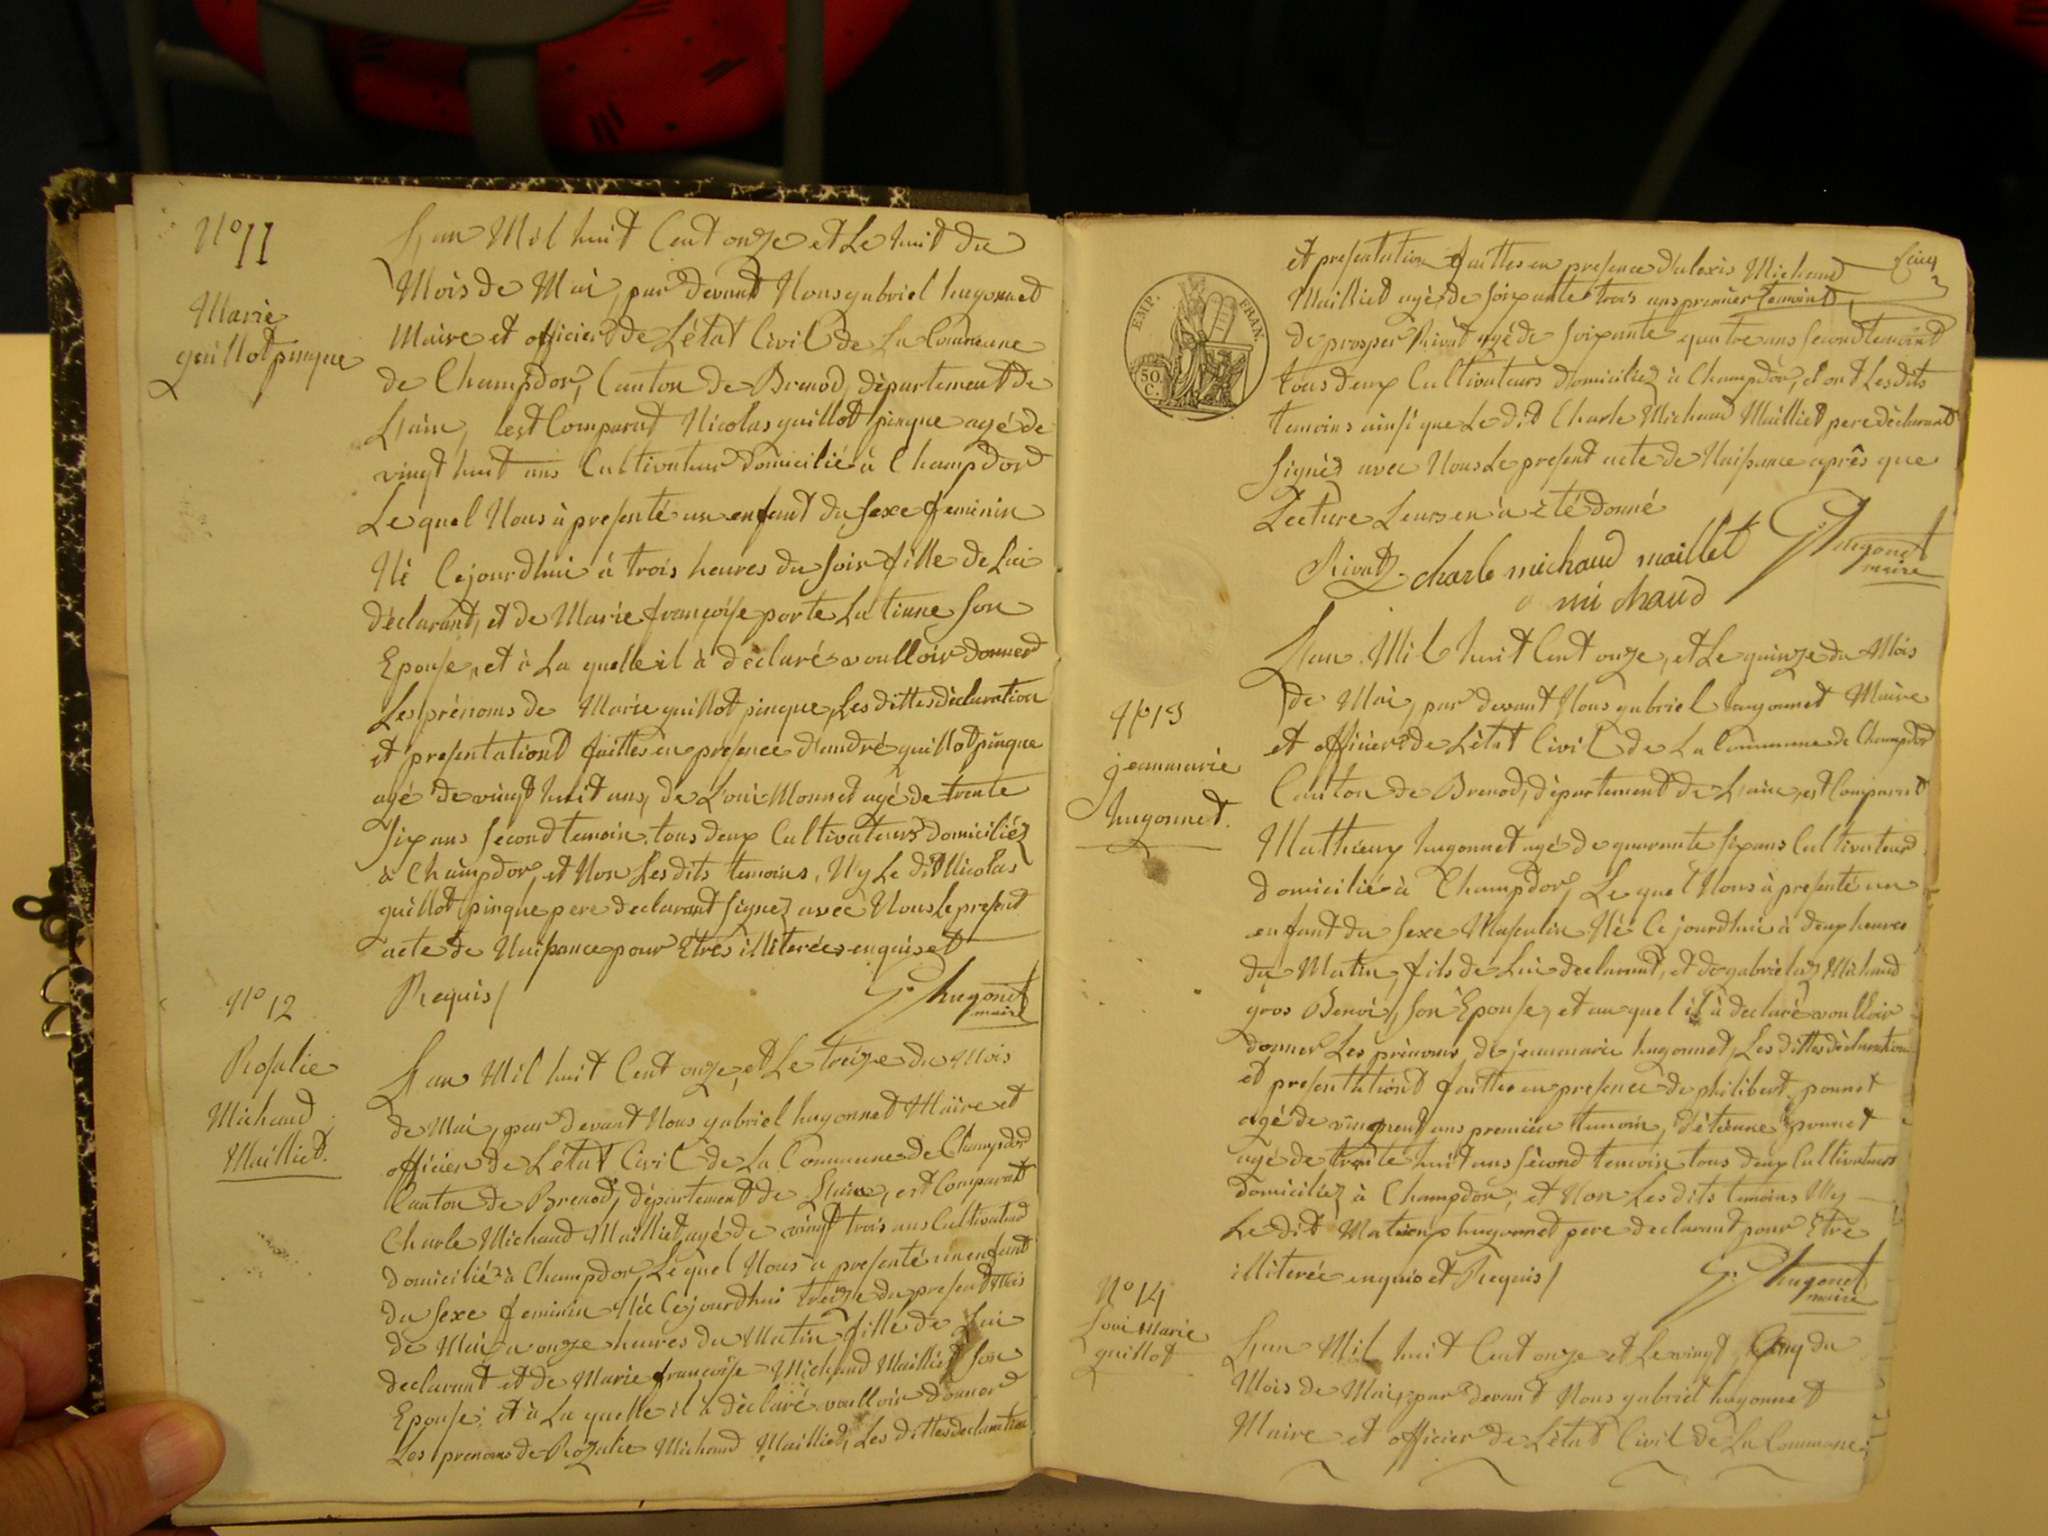 No 11
Marie
guillot pinque
Lan Mil huit Cent onze et Le huit du
Mois de Mai, par devant Nous gabriel hugonnet
Maire et officier de Létat Civil de La Commune
de Champdor, Canton de Brenod, département de
Lain, est Comparut Nicolas guillot pinque agé de
vingt huit ans Cultivateur domicilié à Champdor
Le quel Nous à presenté un enfant du sexe feminin
Né Cejourdhui à trois heures du soir fille de Lui
déclarant, et de Marie françoise porte La tienne son
Epouse, et à La quelle il à déclaré voulloir donner
Les prénoms de Marie guillot pinque, Les dittes déclaration
et presentationt faittes en presence d'andré guillot pinque
agé de vingt huit ans, de Loui Monnet agé de trente
six ans second temoin tous deux Cultivateurs domiciliéz
à Champdor, et Non Les dits temoins, Ny Le dit Nicolas
guillot pinque pere declarant signez avec Nous Le present
acte de Naissance pour Etres illiterées enquis et
Requis/
G. hugonet
maire
No 12
Rosalie
Michaud
Mailliet.
Lan Mil huit Cent onze, et Le treize du Mois
de Mai, par devant Nous gabriel hugonnet Maire et
officier de Létat Civil de La Commune de Champdor
Canton de Brenod, département de Lain, est Comparut
Charle Michaud Mailliet agé de vingt trois ans Cultivateur
domicilié à Champdor, Le quel Nous à presenté un enfant
du sexe feminin Née Cejourdhui treize du present Mois
de Mai a onze heures du Matin fille de Lui
declarant et de Marie françoise Michaud Mailliet son
Epouse, et à La quelle il à déclaré voulloir donner
Les prenoms de Rozalie Michaud Mailliet, Les dittes declaration
EMP. FRAN.
50 C.
et presentation faittes en presence d'alexis Michaud
Mailliet agé de soixante trois ans premier temoint,
de prosper Rivat agé de soixante quatre ans second temoint
tous deux Cultivateurs domiciliez à Champdor, et ont Les dits
temoins ainsi que Le dit Charle Michaud Mailliet pere déclarant
signéz avec Nous Le present acte de Naissance après que
Lecture Leurs en à été donné
Rivat. charle michaud maillet
G. hugonet
maire
michaud
No 13
jeanmarie
hugonnet.
Lan Mil huit Cent onze, et Le quinze du Mois
de Mai, par devant Nous gabriel hugonnet Maire
et officier de Létat Civil de La Commune de Champdor
Canton de Brenod, département de Lain, est Comparut
Mathieux hugonnet agé de quarante six ans Cultivateur
domicilié à Champdor, Le quel Nous à presenté un
enfant du sexe Masculin Né Cejourdhui à deux heures
du Matin, fils de Lui declarant, et de Michaud
gros Benoi, son Epouse, et au quel il à declaré voulloir
donner Les prénoms, de jeanmarie hugonnet, Les dittes déclaration
et presentationt faittes en presence de philibert ponnet
agé de ans premier temoin, d'étienne ponnet
agé de trente huit ans sécond temoin tous deux Cultivateurs
domiciliez à Champdor, et Non Les dits temoins Ny
Le dit Matieux hugonnet pere declarant pour Etre
illiterée enquis et Requis/
G. hugonet
maire
No 14
Loui Marie
guillot
Lan Mil huit Cent onze et Le vingt Cinq du
Mois de Mai, par devant Nous gabriel hugonnet
Maire et officier de Létat Civil de La Commune